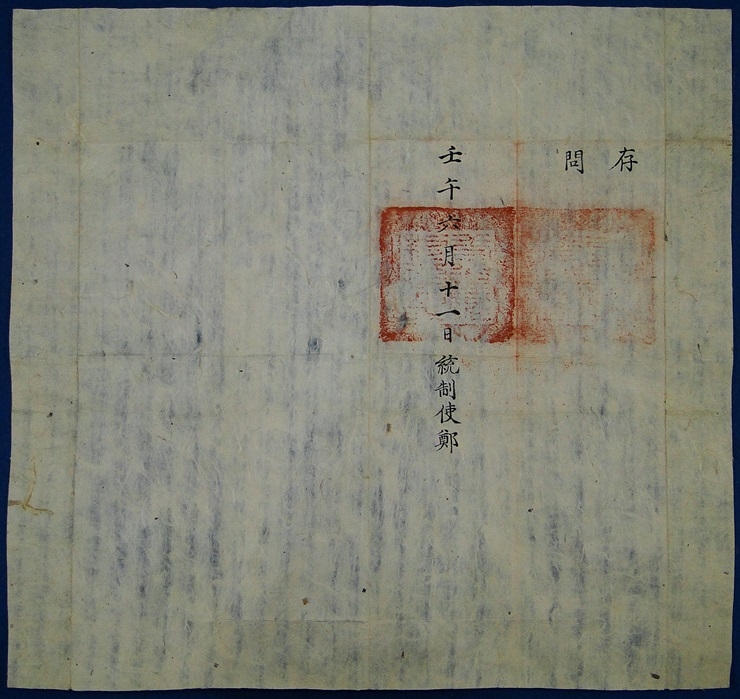 存
問
壬午六月十一日統制使鄭